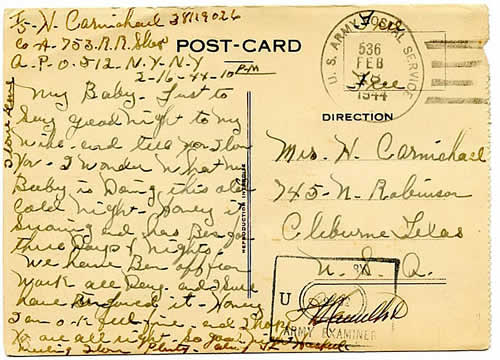 T/5-H. Carmichael 38119026
Co A- 753-R.R. Shop
A-P-O-512-N-Y-N-Y
2-16-44-10 P-M
My Baby- Just to
Say good night to my
Wife- and tell you I love
You- I Wonder What my
Baby is Doing this
Cold Night- Honey it
Snowing and has Ben for
three Days & Nights
We have Ben off from
Work all Day- and I Sure
have enjoyed it- Honey
I am o-k- feel fine- and I hope
You are all right- so your
I love
POST-CARD
REPRODUCTION INTERDITE
U. S. ARMY POSTAL SERVICE
536
FEB
1944
Free
DIRECTION
Mrs. H. Carmichael
745-N-Robinson
Cleburne Texas
U. S. A.
U
ARMY EXAMINER